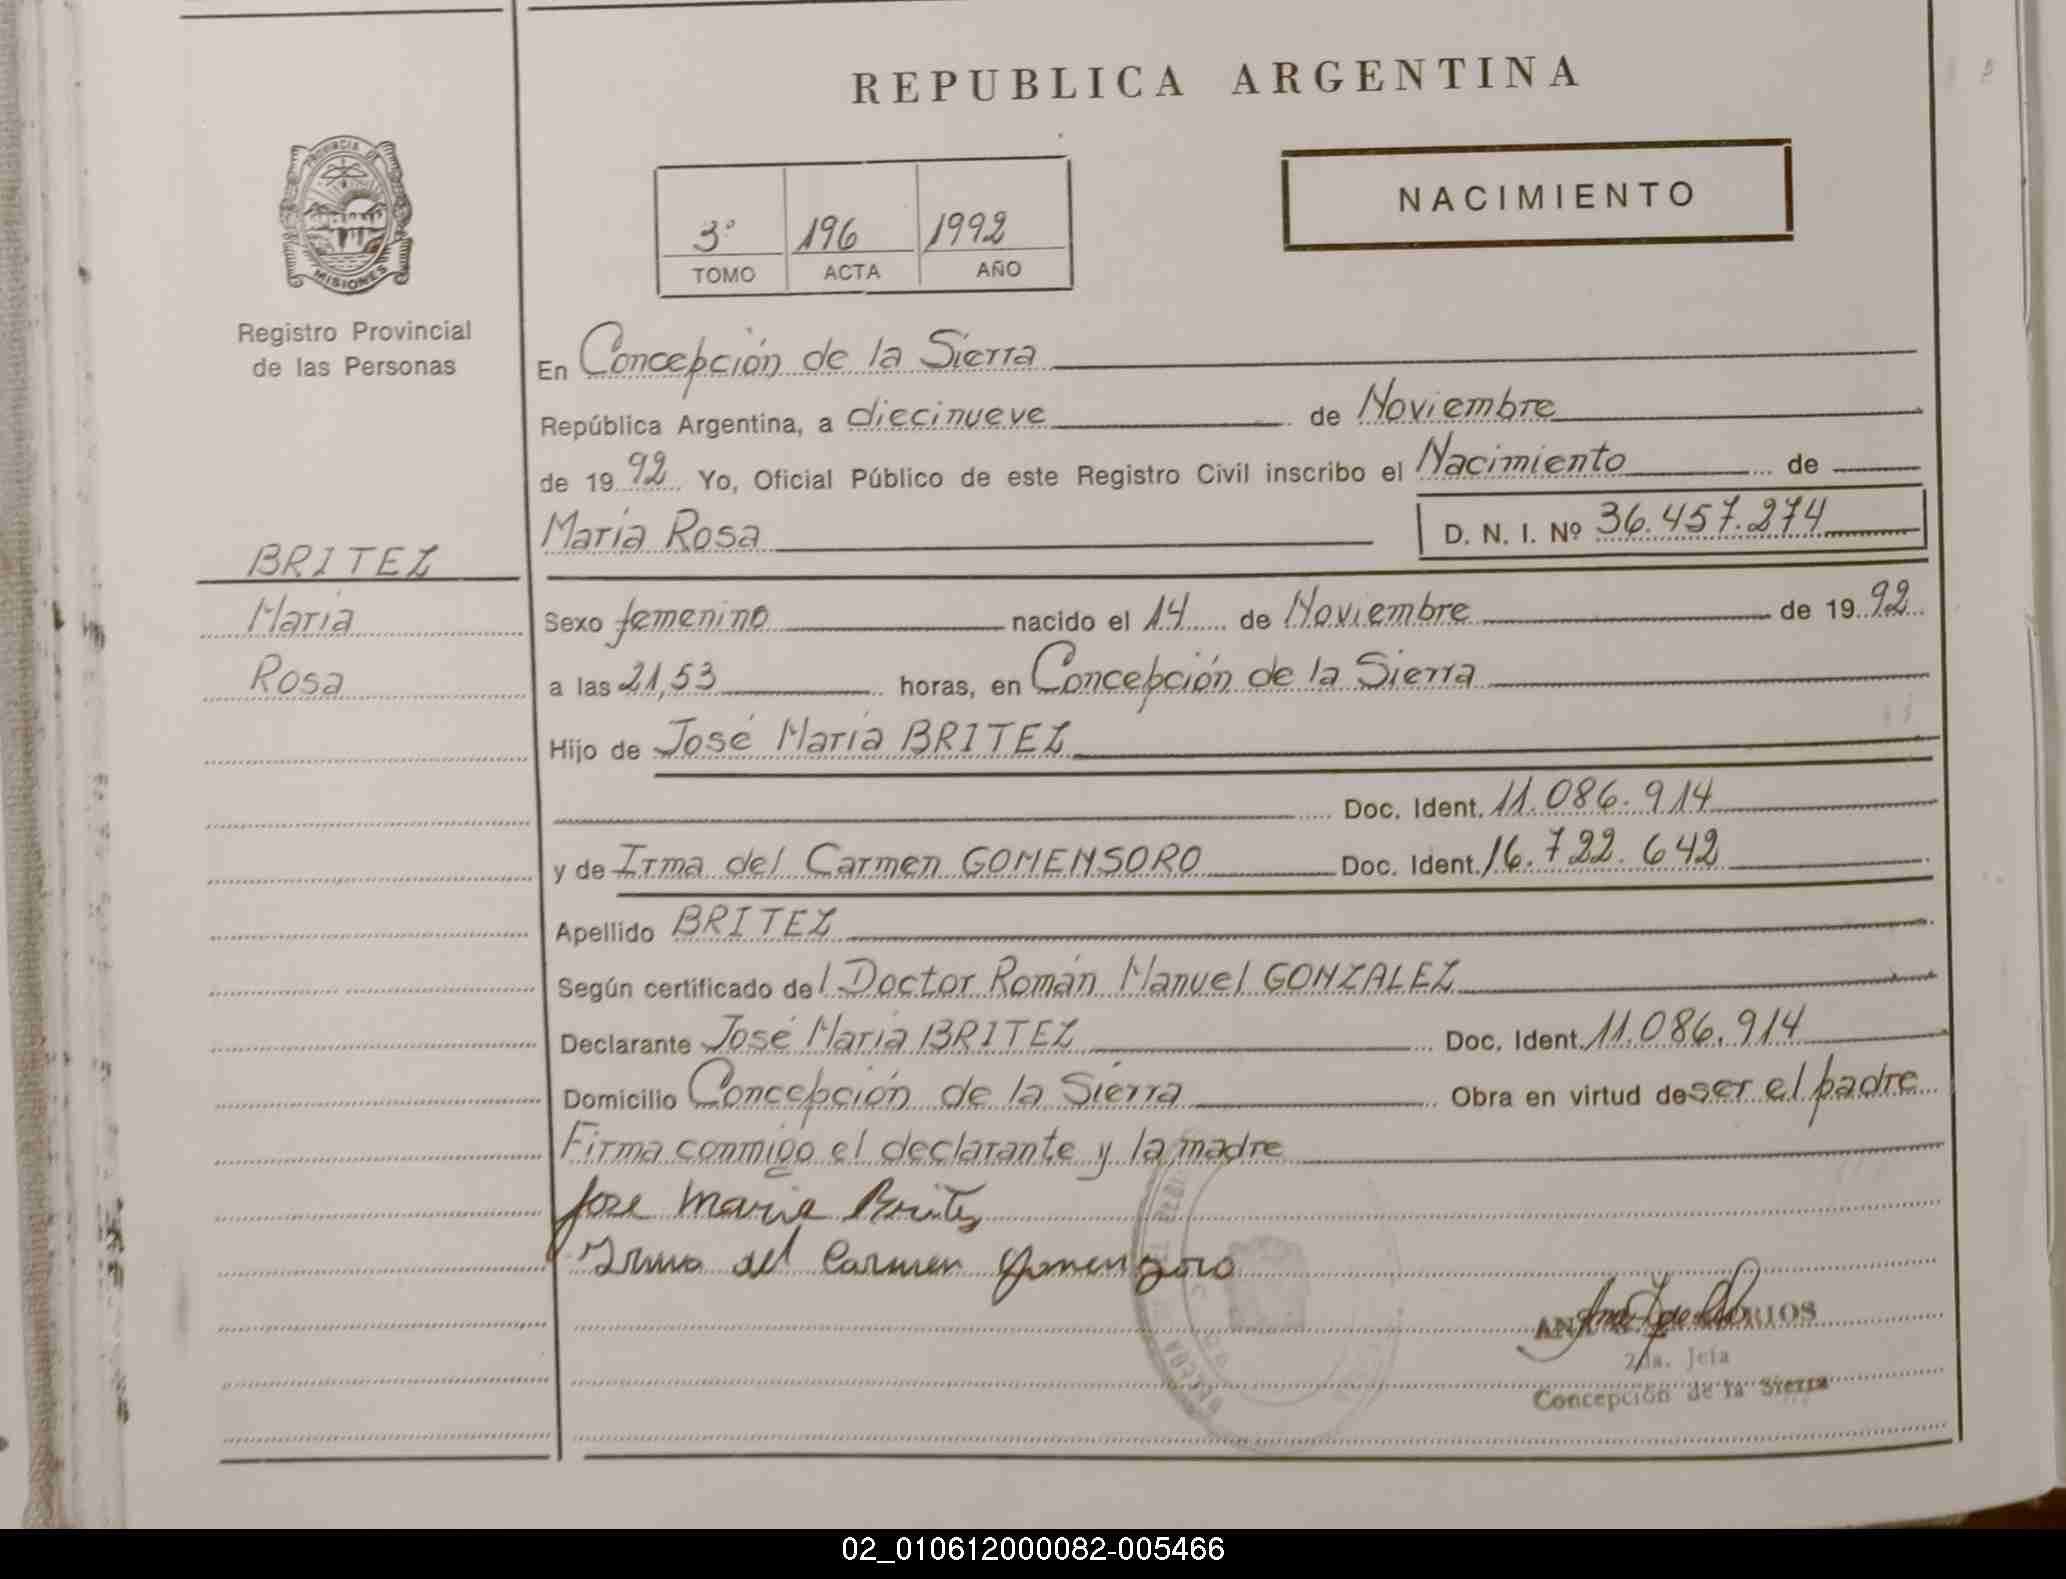 REPUBLICA ARGENTINA
PROVINCIA DE
MISIONES
Registro Provincial
de las Personas
NACIMIENTO
3º 196 1992
TOMO ACTA AÑO
En Concepción de la Sierra
República Argentina, a diecinueve de Noviembre
de 19 92 Yo, Oficial Público de este Registro Civil inscribo el Nacimiento de
María Rosa D. N. I. Nº 36.457.274
BRITEZ
María
Rosa
Sexo femenino nacido el 14 de Noviembre de 19 92
a las 21,53 horas, en Concepción de la Sierra
Hijo de José María BRITEZ
Doc. Ident. 11.086.914
y de Irma del Carmen GOMENSORO Doc. Ident. 16.722.642
Apellido BRITEZ
Según certificado del Doctor Román Manuel GONZALEZ
Declarante José María BRITEZ Doc. Ident. 11.086.914
Domicilio Concepción de la Sierra Obra en virtud de ser el padre
Firma conmigo el declarante y la madre
Jose Maria Britez
Irma del Carmen Gomenzoro
2da. Jefa
Concepción de la Sierra
02_010612000082-005466